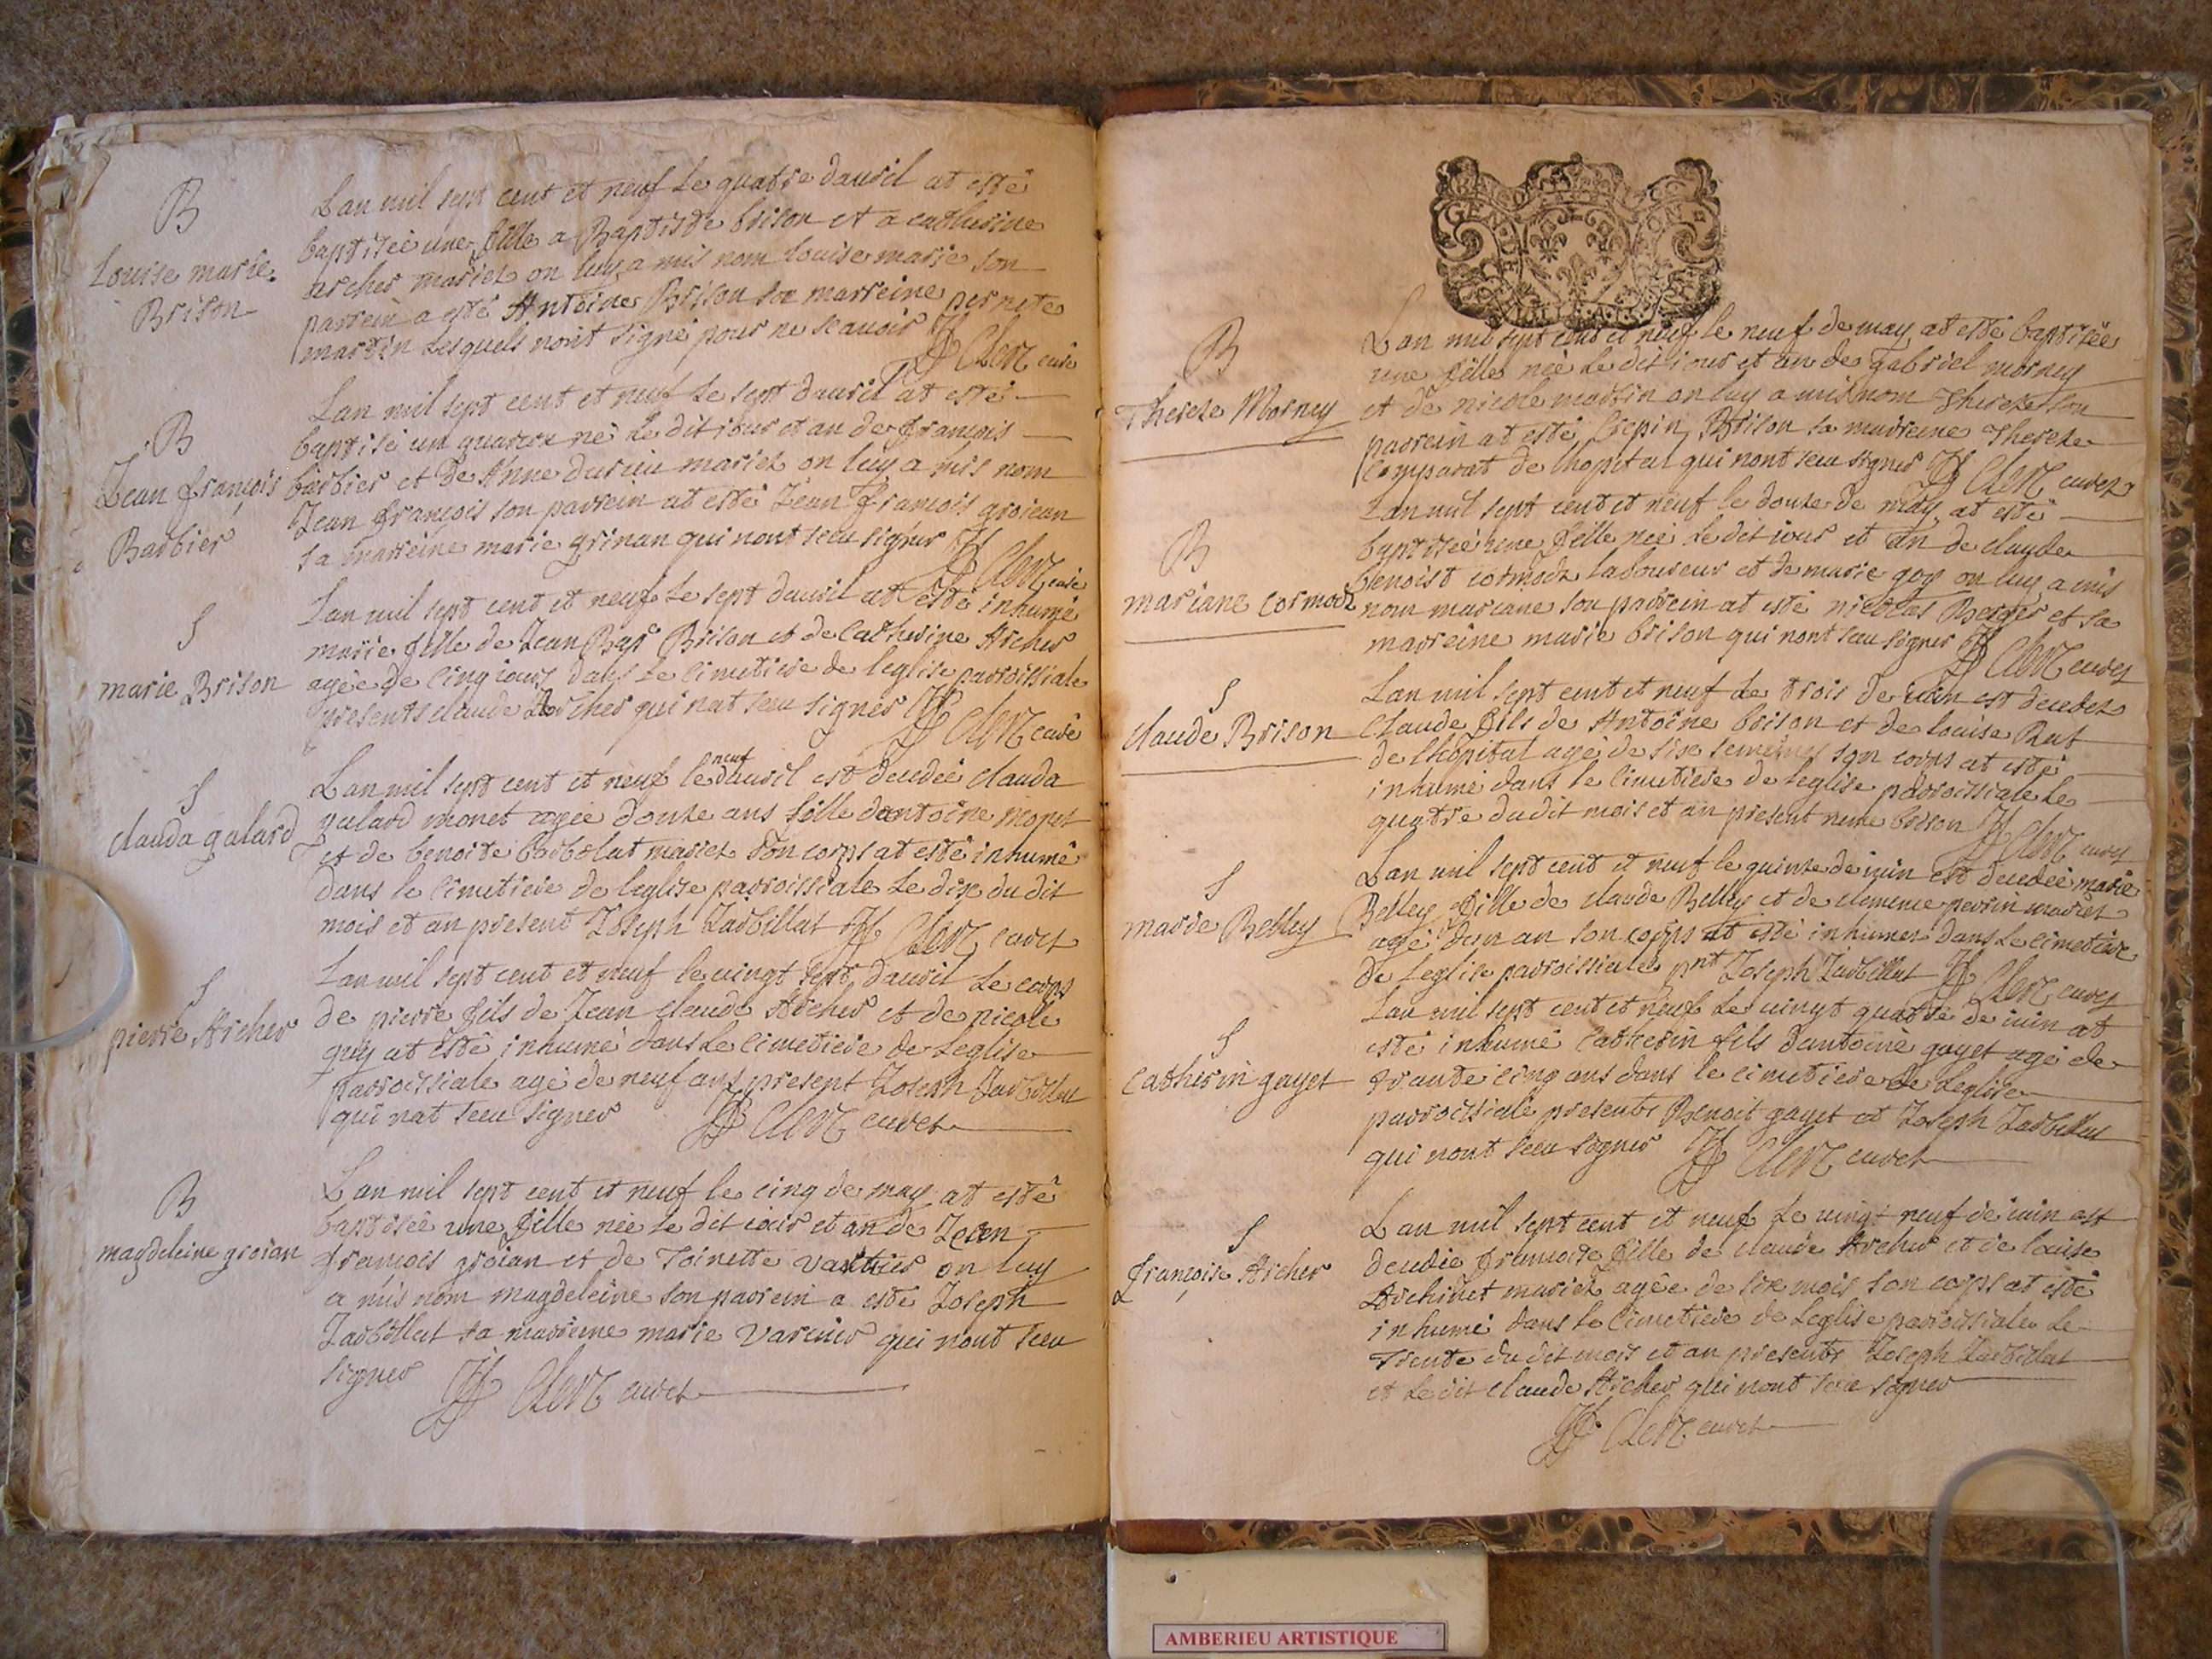 B
Louise marie
Brison
Lan mil sept cent et neuf le quatre davril at esté
baptisée une fille a Baptiste brison et a catherine
archer mariez on luy a mis nom louise marie son
parrein a esté Antoine Brison sa marreine pernete
martin lesquels nont signé pour ne scavoir Clerc curé
B
Jean françois
Barbier
Lan mil sept cent et neuf le sept davril at esté
baptisé un garcon né le dit iour et an de françois
barbier et de Anne mariez on luy a mis nom
Jean françois son parrein at esté Jean françois groiean
sa marreine marie grinan qui nont sceu signer Clerc curé
S
marie Brison
Lan mil sept cent et neuf le sept davril at esté inhumé
marie fille de Jean Bap Brison et de Catherine Archer
agée de cinq iours dans le cimetiere de leglise parroissiale
presents claude Archer qui nat sceu signer Clerc curé
S
clauda galard
Lan mil sept cent et neuf le neuf davril est decedée clauda
galard monet agée douze ans fille dantoine monet
et de benoite barbolat mariez son corps at esté inhumé
dans le cimetiere de leglise parroissiale le dix du dit
mois et an present Joseph Jarbillat Clerc curez
S
pierre Archer
Lan mil sept cent et neuf le vingt sept davril le corps
de pierre fils de Jean claude Archer et de nicole
guy at esté inhumé dans le cimetiere de leglise
parroissiale agé de neuf ans present Joseph Jarbillat
qui nat sceu signer Clerc curez
B
magdeleine groian
Lan mil sept cent et neuf le cinq de may at esté
baptisée une fille née le dit iour et an de Jean
françois groian et de Toinette on luy
a mis nom magdeleine son parrein a esté Joseph
Jarbillat sa marreine marie qui nont sceu
signer Clerc curez
GEN DE DIION
B
Thereze Morney
Lan mil sept cent et neuf le neuf de may at esté baptisée
une fille née le dit iour et an de gabriel morney
et de nicole martin on luy a mis nom Thereze son
parrein at esté Crepin Brison sa marreine Thereze
Comparat de lhopital qui nont sceu signer Clerc curez
B
mariane Cormodz
Lan mil sept cent et neuf le douze de may at esté
baptisée une fille née le dit iour et an de claude
benoist cormodz laboureur et de marie goy on luy a mis
nom mariane son parrein at esté nicolas Berger et sa
marreine marie brison qui nont sceu signer Clerc curez
S
claude Brison
Lan mil sept cent et neuf le trois de iuin est decedez
claude fils de Antoine brison et de louise Rat
de lhopital agé de six semeines son corps at esté
inhumé dans le cimetiere de leglise parroissiale le
quatre du dit mois et an present brison Clerc curez
S
marie Belley
Lan mil sept cent et neuf le quinze de iuin est decedée marie
Belley fille de claude Belley et de clemence perrin mariez
agé dun an son corps at esté inhumez dans le cimetiere
de leglise parroissiale pnt Joseph Jarbillat Clerc curez
S
Catherin gayet
Lan mil sept cent et neuf le vingt quatre de iuin at
esté inhumé Catherin fils dantoine gayet agé de
trante cinq ans dans le cimetiere de leglise
parroissiale presents Benoit gayet et Joseph Jarbillat
qui nont sceu signer Clerc curez
S
françoise Archer
Lan mil sept cent et neuf le vingt neuf de iuin est
decedée françoise fille de claude Archer et de louise
Archinet mariez agée de six mois son corps at esté
inhumé dans le cimetiere de leglise parroissiale le
trente du dit mois et an presents Joseph Jarbillat
et le dit claude Archer qui nont sceu signer
Clerc curez
AMBERIEU ARTISTIQUE